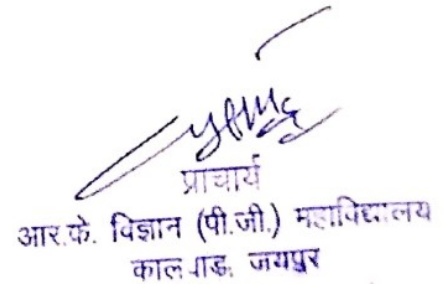 प्राचार्य
आर.के. विज्ञान (पी.जी.) महाविद्यालय
कालवाड, जयपुर